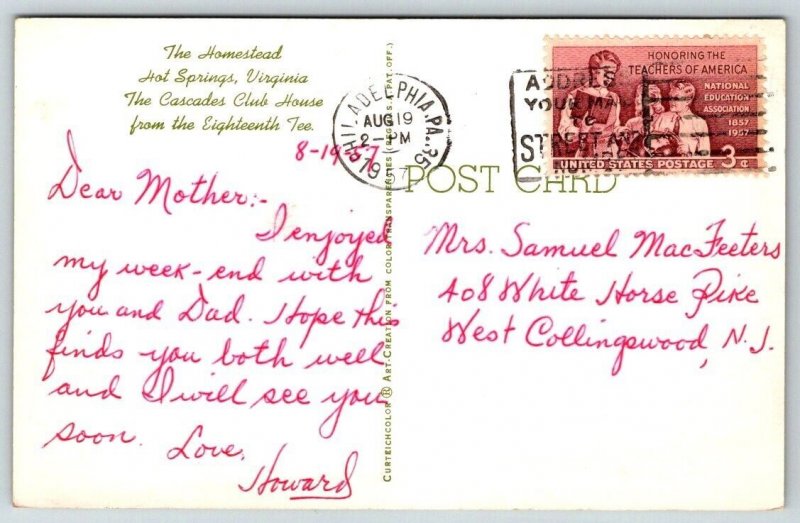 The Homestead
Hot Springs, Virginia
The Cascades Club House
from the Eighteenth Tee.
8-19-57
Dear Mother:-
I enjoyed
my week-end with
you and Dad. Hope this
finds you both well
and I will see you
soon. Love,
Howard
CURTEICHCOLOR ® ART-CREATION FROM COLOR TRANSPARENCIES (REG. U.S.A. PAT. OFF.)
PHILADELPHIA, PA. 35
AUG 19
2-PM
1957
ADDRES
YOUR MA
TO
STREET AND
HONORING THE
TEACHERS OF AMERICA
NATIONAL
EDUCATION
ASSOCIATION
1857
1957
UNITED STATES POSTAGE 3¢
POST CARD
Mrs. Samuel MacFeeters
408 White Horse Pike
West Collingswood, N.J.